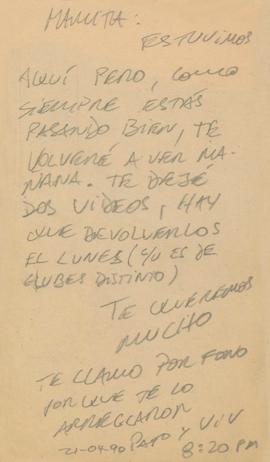 MAMITA:
ESTUVIMOS
AQUÍ PERO, COMO
SIEMPRE ESTÁS
PASANDO BIEN, TE
VOLVERÉ A VER MA-
ÑANA. TE DEJÉ
DOS VIDEOS, HAY
QUE DEVOLVERLOS
EL LUNES (C/U ES DE
CLUBES DISTINTO)
TE QUEREMOS
MUCHO
TE LLAMO POR FONO
POR QUE TE LO
ARREGLARON
21-04-90 PATO Y VIV
8:20 PM